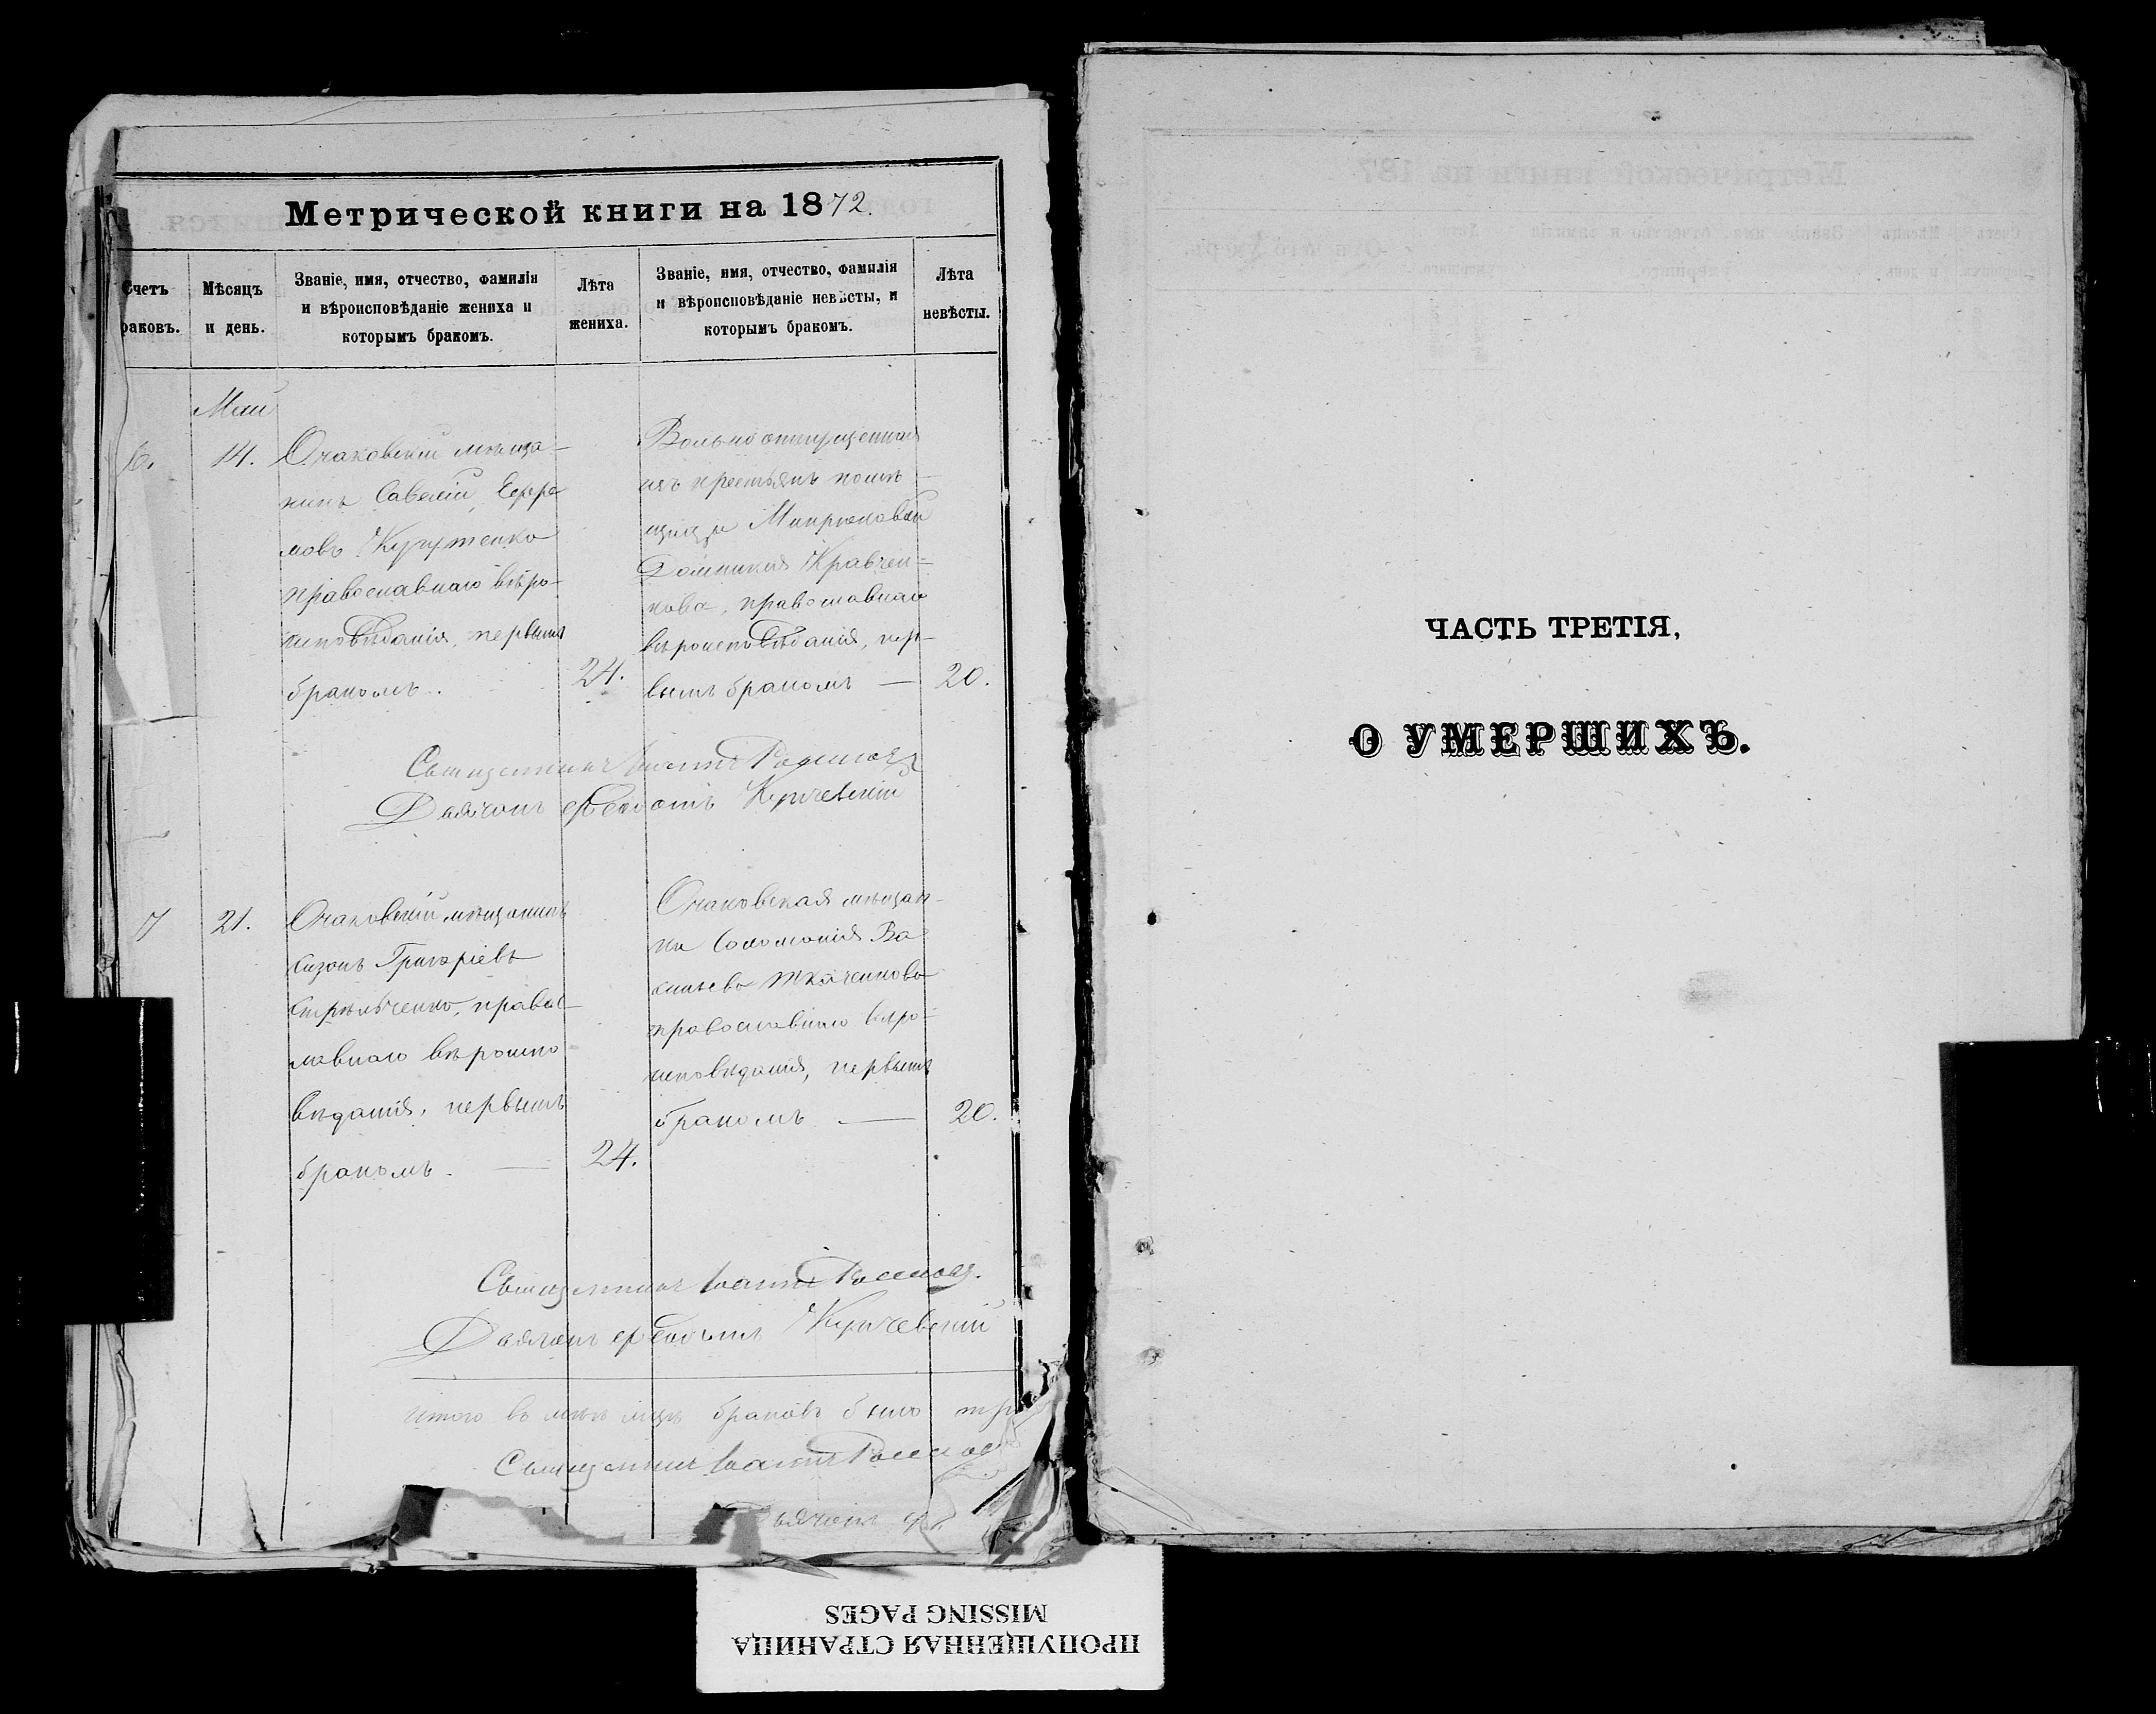 Метрической книги на 1872.
Счетъ
раковъ.
Мѣсяцъ
и день.
Званіе, имя, отчество, фамилія
и вѣроисповѣданіе жениха и
которымъ бракомъ.
Лѣта
жениха.
Званіе, имя, отчество, фамилія
и вѣроисповѣданіе невѣсты, и
которымъ бракомъ.
Лѣта
невѣсты.
Май
6.
14.
Очаковскій мѣща-
нинъ Савелій Ефре
мовъ
православнаго вѣро-
исповѣданія, первымъ
бракомъ.
24.
Вольноотпущенная
изъ крестьянъ помѣ-
щицы
Домникія Кравчен-
кова, православнаго
вѣроисповѣданія, пер-
вымъ бракомъ —
20.
Священникъ Іоаннъ
Дьячокъ Ѳеодотъ Кричевскій
7
21.
Очаковскій мѣщанинъ
Сизонъ Григоріевъ
Стрѣльченко, правос-
лавнаго вѣроиспо
вѣданія, первымъ
бракомъ. —
24.
Очаковская мѣщан-
ка Соломонія Ва
сильева Ткаченкова
православнаго вѣро-
исповѣданія, первымъ
бракомъ —
20.
Священникъ Іоаннъ
Дьячокъ Ѳеодотъ Кричевскій
Итого въ маѣ мѣсяцѣ браковъ было
Священникъ Іоаннъ
Дьячокъ
ЧАСТЬ ТРЕТІЯ,
О УМЕРШИХЪ.
ПРОПУЩЕННАЯ СТРАНИЦА
MISSING PAGES